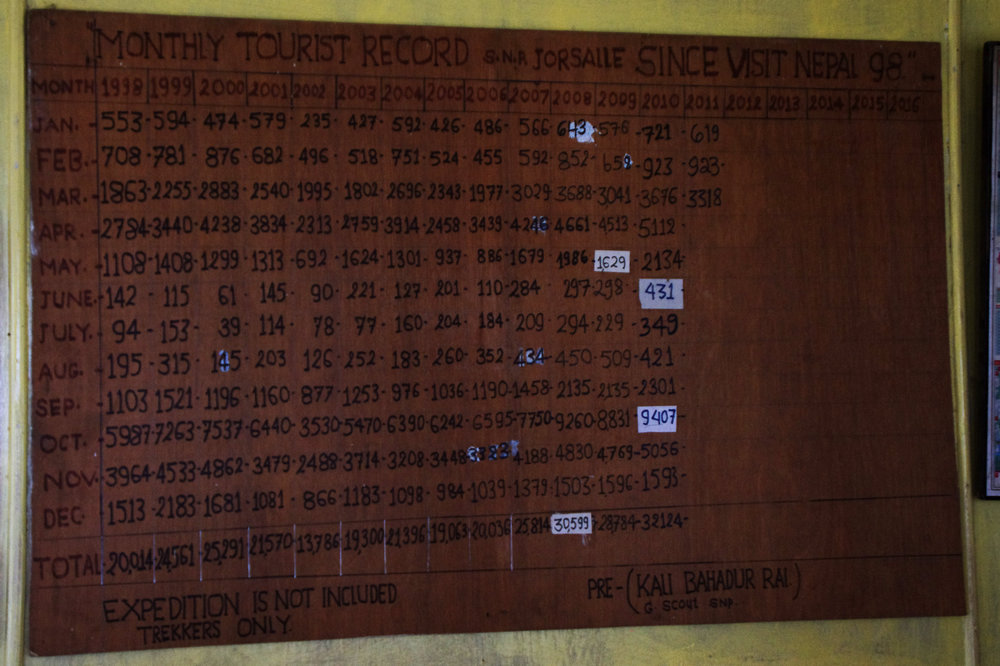 "MONTHLY TOURIST RECORD S.N.P. JORSALLE SINCE VISIT NEPAL 98."
MONTH 1998 1999 2000 2001 2002 2003 2004 2005 2006 2007 2008 2009 2010 2011 2012 2013 2014 2015 2016
JAN. - 553 - 594 - 474 - 579 - 235 - 427 - 592 - 426 - 486 - 566 643 - 576 - 721 - 619
FEB. - 708 - 781 - 876 - 682 - 496 - 518 - 751 - 524 - 455 592 - 852 - 659 - 923 - 923-
MAR. - 1863 - 2255 - 2883 - 2540 - 1995 - 1802 - 2696 - 2343 - 1977 - 3029 - 3688 - 3041 - 3676 - 3318
APR. - 2784 - 3440 - 4238 - 3834 - 2313 - 2759 - 3914 - 2458 - 3439 - 4246 4661 - 4513 - 5112-
MAY. - 1108 - 1408 - 1299 - 1313 - 692 - 1624 - 1301 - 937 - 886 - 1679 - 1986 - 1629 - 2134-
JUNE. - 142 - 115 61 - 145 - 90 - 221 - 127 - 201 - 110 - 284 - 297 - 298 - 431-
JULY. - 94 - 153 - 39 - 114 - 78 - 77 - 160 - 204 - 184 - 209 - 294 - 229 - 349-
AUG. - 195 - 315 - 145 - 203 - 126 - 252 - 183 - 260 - 352 - 434 - 450 - 509 - 421-
SEP. - 1103 1521 - 1196 - 1160 - 877 - 1253 - 976 - 1036 - 1190 - 1458 - 2135 - 2135 - 2301-
OCT. - 5987 - 7263 - 7537 - 6440 - 3530 - 5470 - 6390 - 6242 - 6595 - 7750 - 9260 - 8831 - 9407-
NOV. - 3964 - 4533 - 4862 - 3479 - 2488 - 3714 - 3208 - 3448 - 3323 4188 - 4830 - 4769 - 5056-
DEC. - 1513 - 2183 - 1681 - 1081 - 866 - 1183 - 1098 - 984 - 1039 - 1379 - 1503 - 1596 - 1593-
TOTAL - 20,014 - 24,561 - 25,291 - 21,570 - 13,786 - 19,300 - 21,396 - 19,063 - 20,036 - 25,814 - 30,599 - 28,784 - 32124-
EXPEDITION IS NOT INCLUDED
TREKKERS ONLY.
PRE - (KALI BAHADUR RAI)
G. SCOUT SNP.